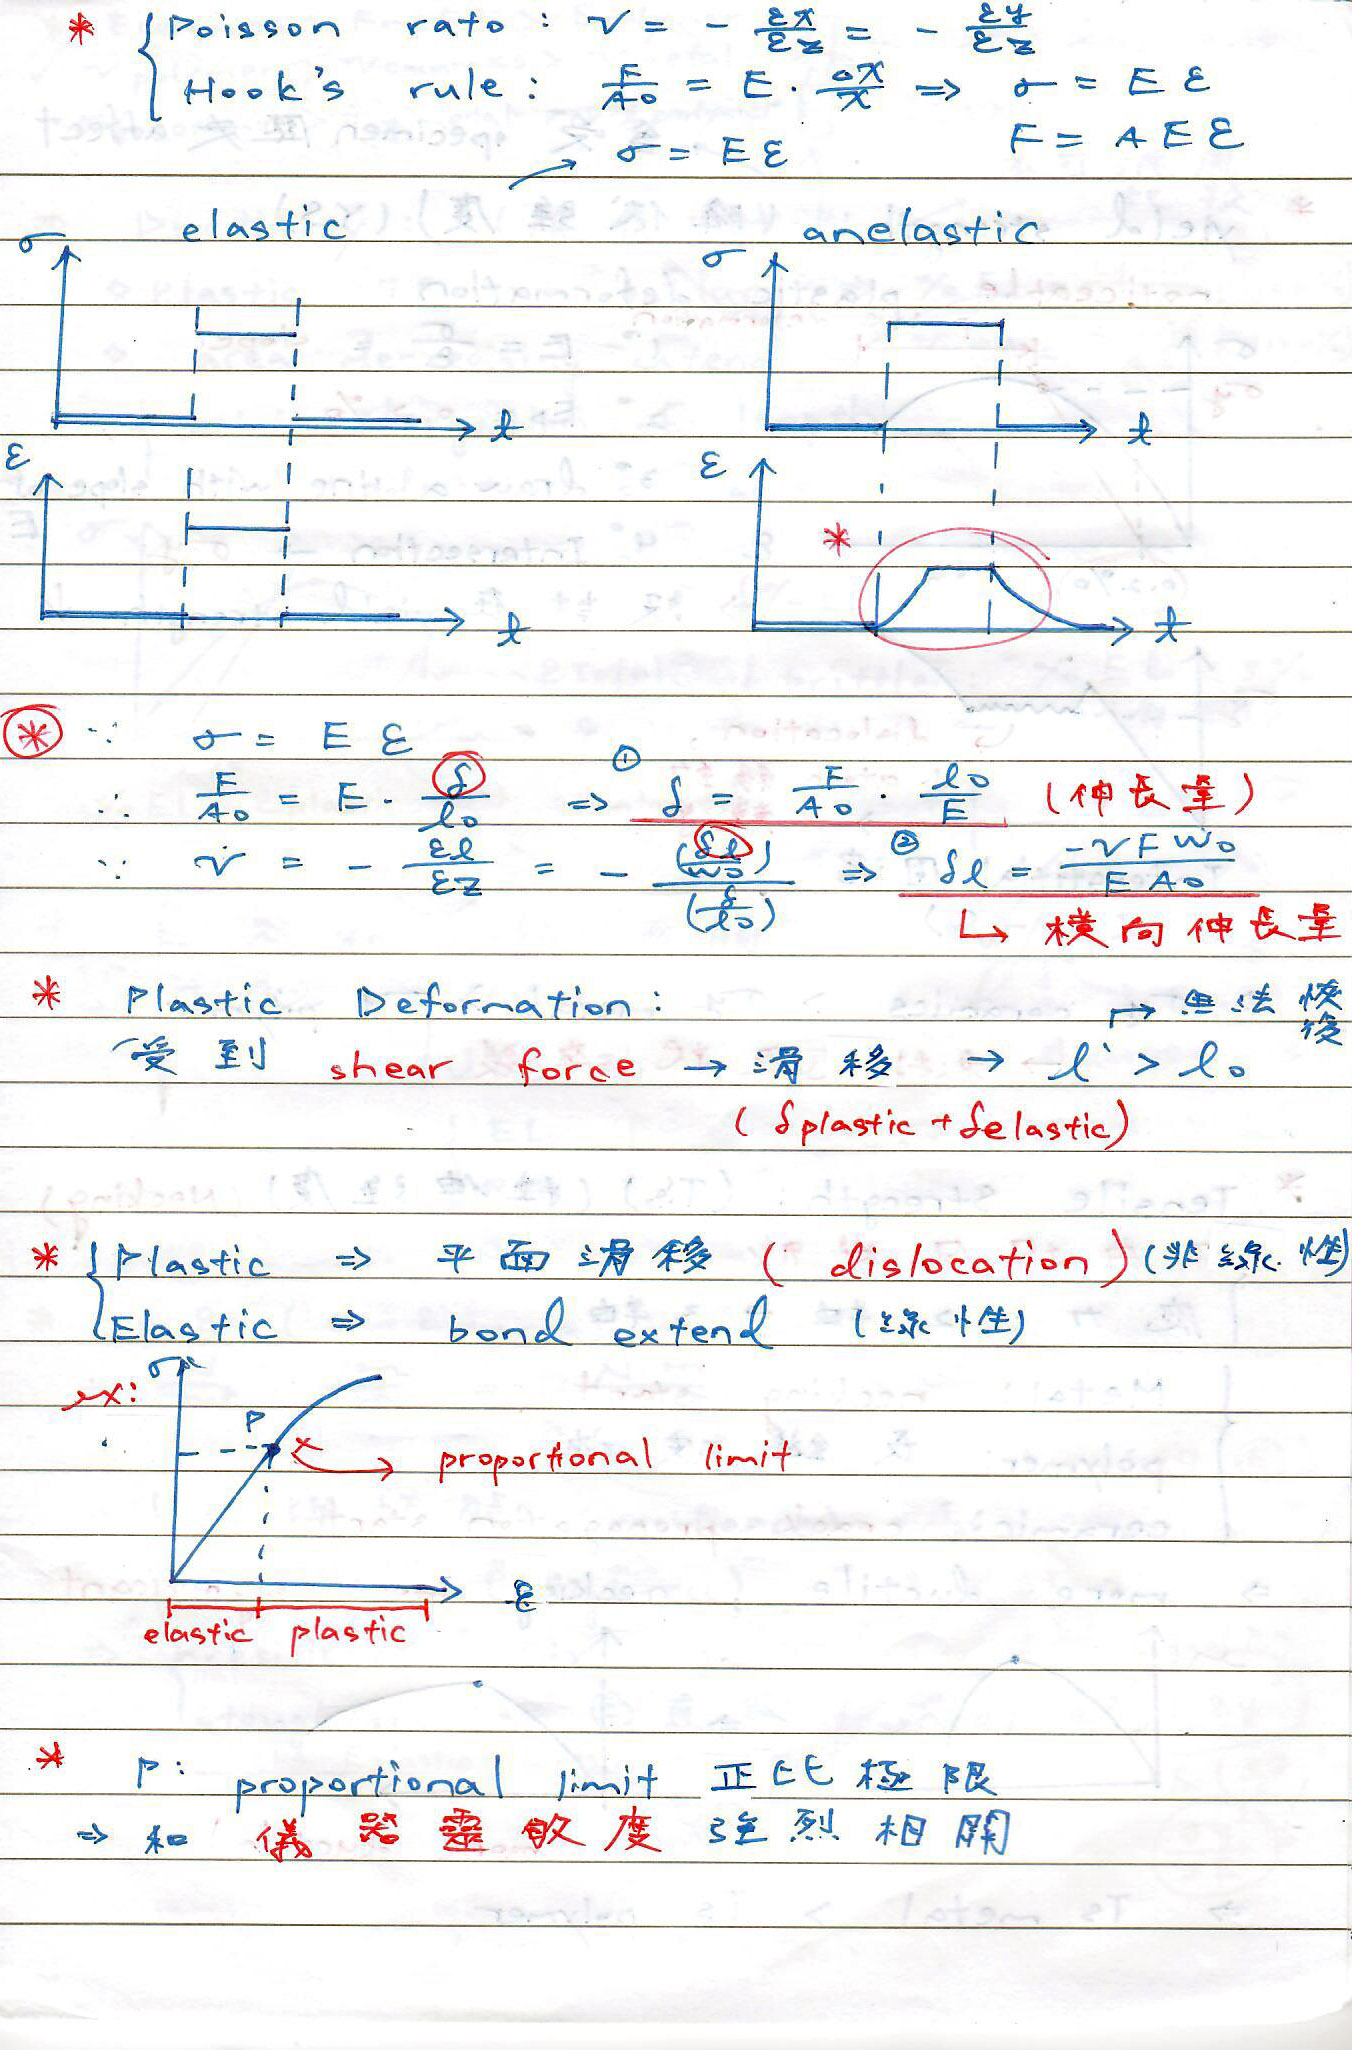 * { Poisson rato : ν = - εx/εz = - εy/εz
Hook's rule : F/A0 = E · ΔX/X ⇒ σ = E ε
F = A E ε
→ σ = E ε
elastic
anelastic
σ
σ
t
t
ε
ε
*
t
t
* ∵ σ = E ε
∴ F/A0 = E · δ/l0 ⇒ ① δ = F/A0 · l0/E (伸長量)
∵ ν = - εl/εz = - (δl/w0)/(δ/l0) ⇒ ② δl = -νFW0/EA0
↳ 橫向伸長量
* Plastic Deformation : ↱ 無法恢復
受到 shear force → 滑移 → l' > l0
(δplastic + δelastic)
* { Plastic ⇒ 平面滑移 (dislocation) (非線性)
Elastic ⇒ bond extend (線性)
ex:
σ
P
proportional limit
ε
elastic plastic
* P: proportional limit 正比極限
⇒ 和儀器靈敏度強烈相關